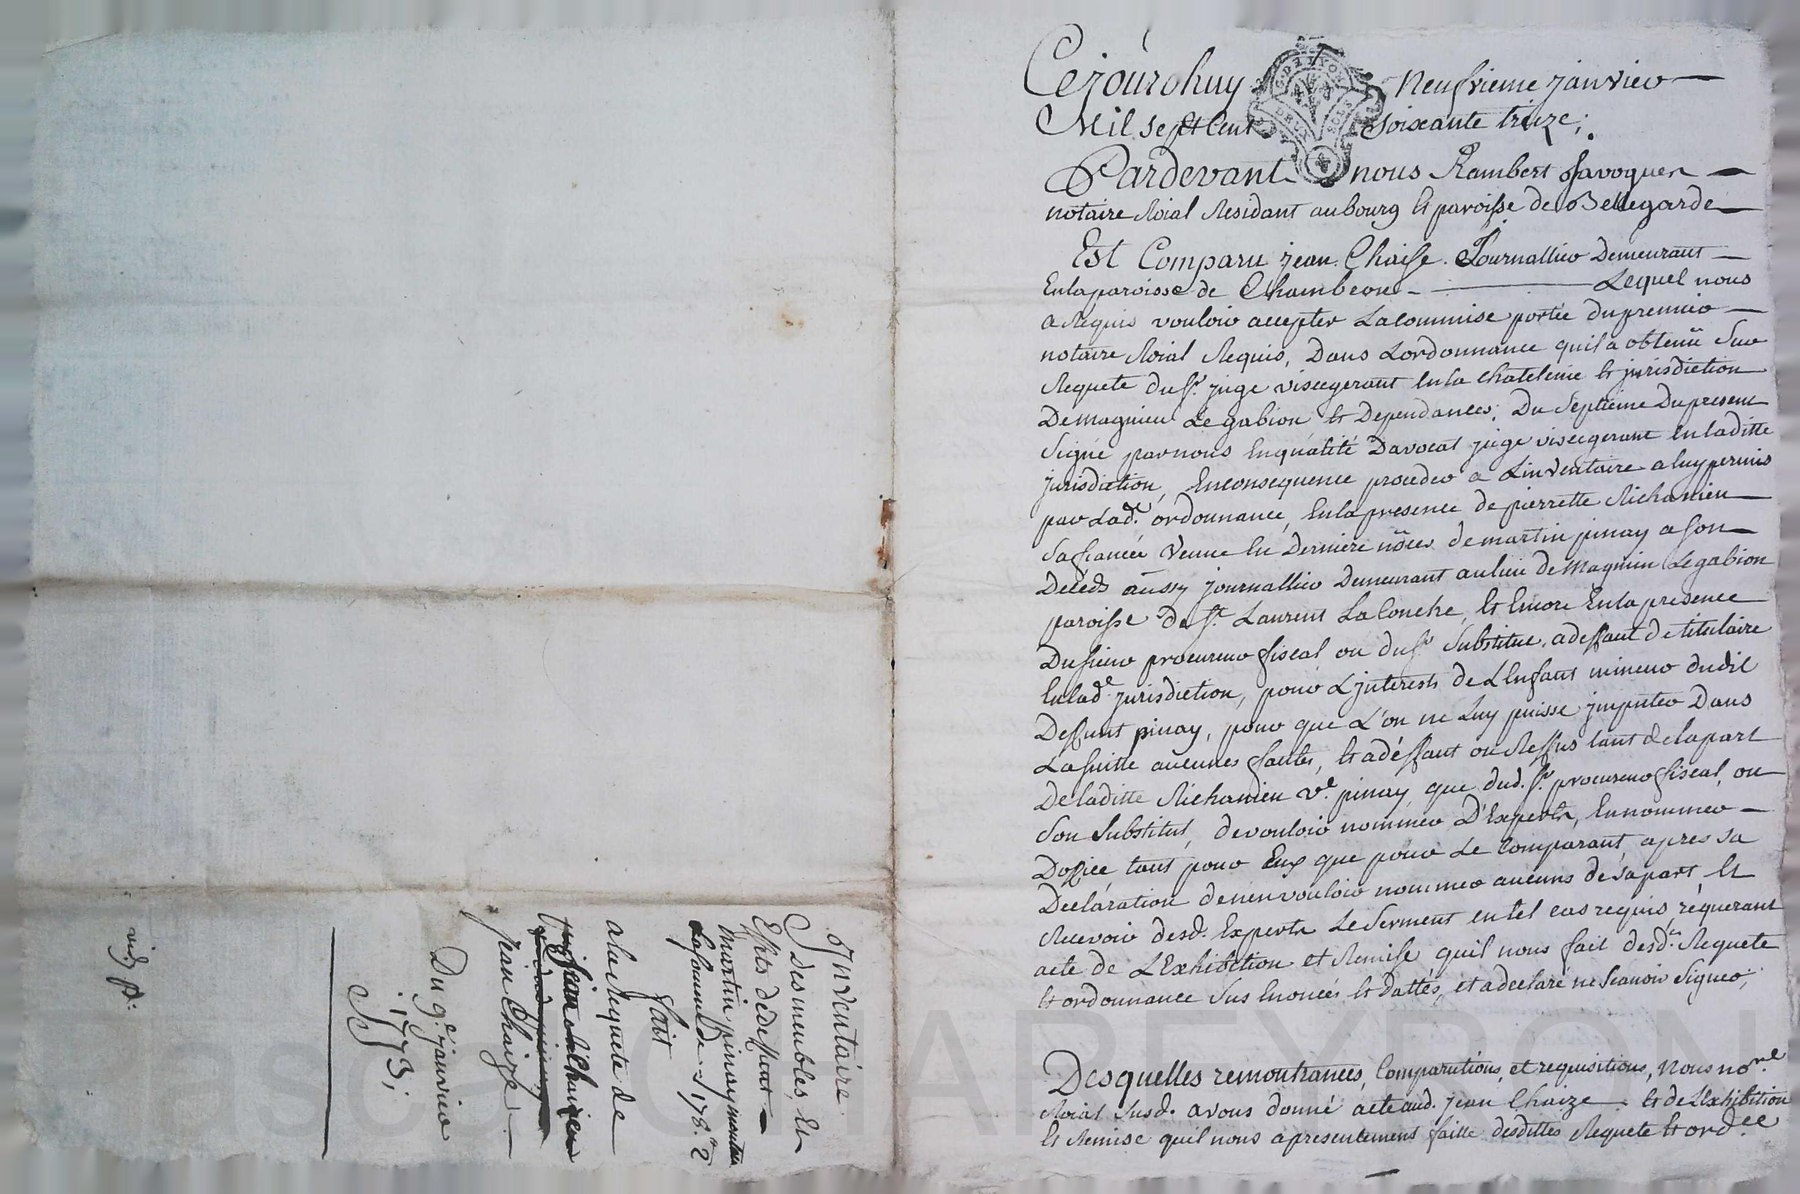 Cejourdhuy Neufvieme janvier
Mil Sept Cent Soixante treize;
Pardevant nous Rambert Favoguer
notaire Roial Residant au bourg et paroisse de Bellegarde
Est Comparu jean Chaise Journallier Demeurant
En la paroisse de Chambeon Lequel nous
a Requis vouloir accepter La commise portée du premier
notaire Roial Requis, Dans Lordonnance quil a obtenüe Sur
Requete du Sr. juge viscegerant En la Chatelenie et jurisdiction
De magnieu Le gabion et Dependances; Du Septieme Du present
Signé par nous En qualité Davocat juge viscegerant En laditte
jurisdiction, En consequence proceder a Linventaire a luy permis
par Lade. ordonnance, En la presence de pierrette Richanieu
Sa fiancée Veuve En Derniere nôces de martin pinay a Son
Décéds aussy journallier Demeurant au lieu de Magnieu Legabion
paroisse De St. Laurent La Conche, Et Encore En la presence
Du Sieur procureur fiscal ou du Sr. Substitut, a deffaut de titulaire
En lade. jurisdiction, pour L'jnterests de L'Enfant mineur dudit
Deffunt pinay, pour que L'on ne Luy puisse jmputer Dans
La Suitte aucunes fautes, Et a déffaut ou Reffus tant de la part
De laditte Richanieu ve. pinay, que dud. Sr. procureur fiscal, ou
Son Substitut, de vouloir nommer D'Experts, En nommer
Doffice tant pour Eux que pour Le Comparant, apres sa
Declaration de nen vouloir nommer aucuns de Sa part, Et
Recevoir desd. Experts Le Serment en tel cas requis, requerant
acte de L'Exhibition et Remise quil nous fait desdtes. Requete
Et ordonnance Sus Enoncés Et Dattés, et a declaré ne Scavoir Signer;
Desquelles remontrances, Comparutions, et requisitions, Nous nore.
Roial Susd. avons donné acte aud. jean Chaize Et de L'exhibition
Et Remise quil nous a presentement faitte desdittes Requete Et ordce
Jnventaire
Des meubles, Et
Effets de deffunt
Martin pinay montan
La Somme de 178.# 2
fait
a la Requete de
jean Chaize
Du 9e. janvier
1773;